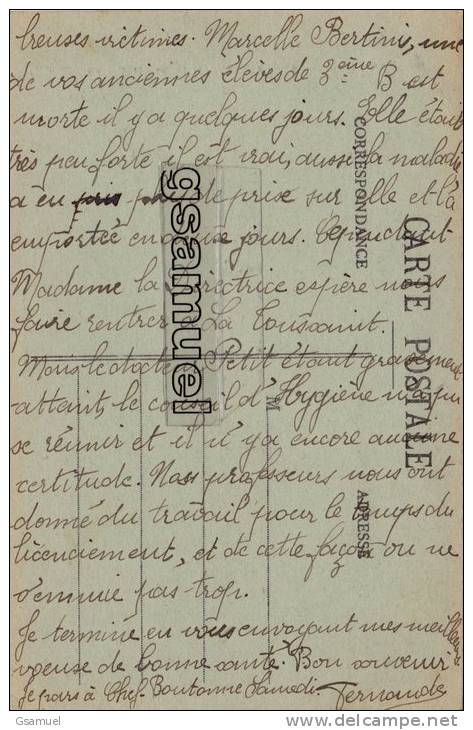 breuses victimes. Marcelle Bertini, une
de vos anciennes élèves de 3ème B est
morte il y a quelques jours. Elle était
très peu forte il est vrai, aussi la maladie
a eu de prise sur elle et l'a
emportée en jours. Cependant
Madame la Directrice espère nous
faire rentrer à La Toussaint.
Mons le docteur Petit étant gravement
atteint, le conseil d'Hygiène n'a pu
se réunir et il n'y a encore aucune
certitude. Nos professeurs nous ont
donné du travail pour le temps du
licenciement, et de cette façon on ne
s'ennuie pas trop.
Je termine en vous envoyant mes meilleurs
voeux de bonne santé. Bon souvenir
Je pars à Chef-Boutonne Samedi. Fernande
CARTE POSTALE
CORRESPONDANCE
ADRESSE
M
gsamuel
Gsamuel
http://www.delcampe.net